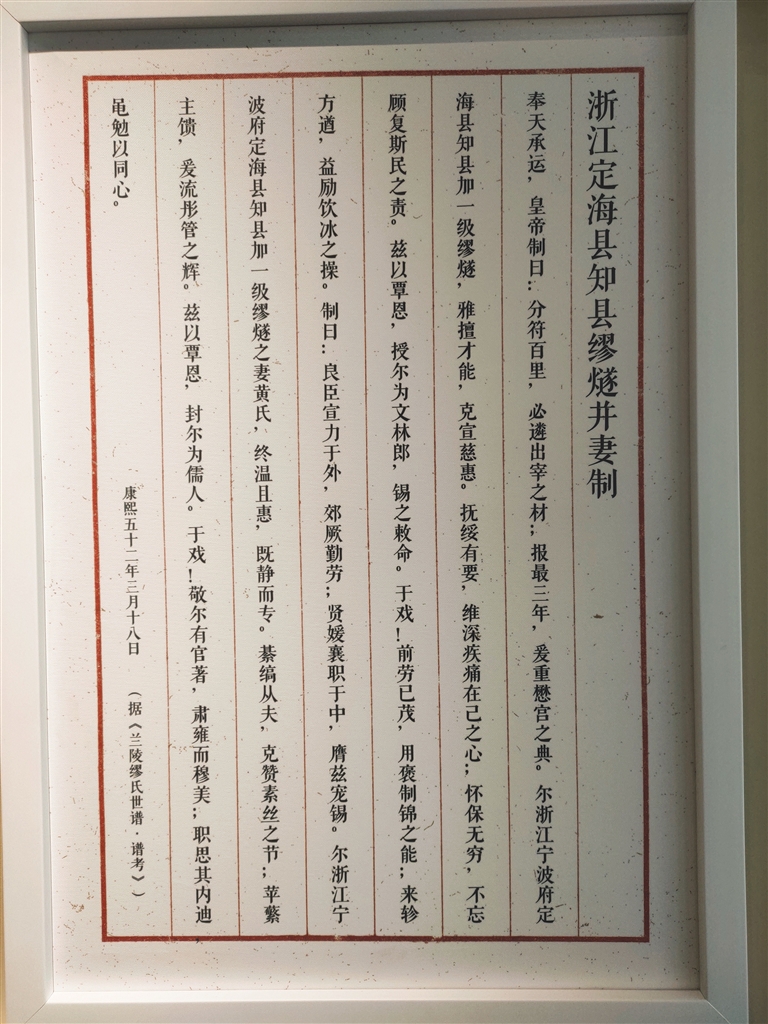 浙江定海县知县缪燧并妻制
奉天承运，皇帝制曰：分符百里，必遴出宰之材；报最三年，爰重懋官之典。尔浙江宁波府定
海县知县加一级缪燧，雅擅才能，克宣慈惠。抚绥有要，维深疾痛在己之心；怀保无穷，不忘
顾复斯民之责。兹以覃恩，授尔为文林郎，锡之敕命。于戏！前劳已茂，用褒制锦之能；来轸
方遒，益励饮冰之操。制曰：良臣宣力于外，郊厥勤劳；贤媛襄职于中，膺兹宠锡。尔浙江宁
波府定海县知县加一级缪燧之妻黄氏，终温且惠，既静而专。綦缟从夫，克赞素丝之节；苹蘩
主馈，爰流彤管之辉。兹以覃恩，封尔为儒人。于戏！敬尔有官著，肃雍而穆美；职思其内迪
黾勉以同心。
康熙五十二年三月十八日 （据《兰陵缪氏世谱·谱考》）